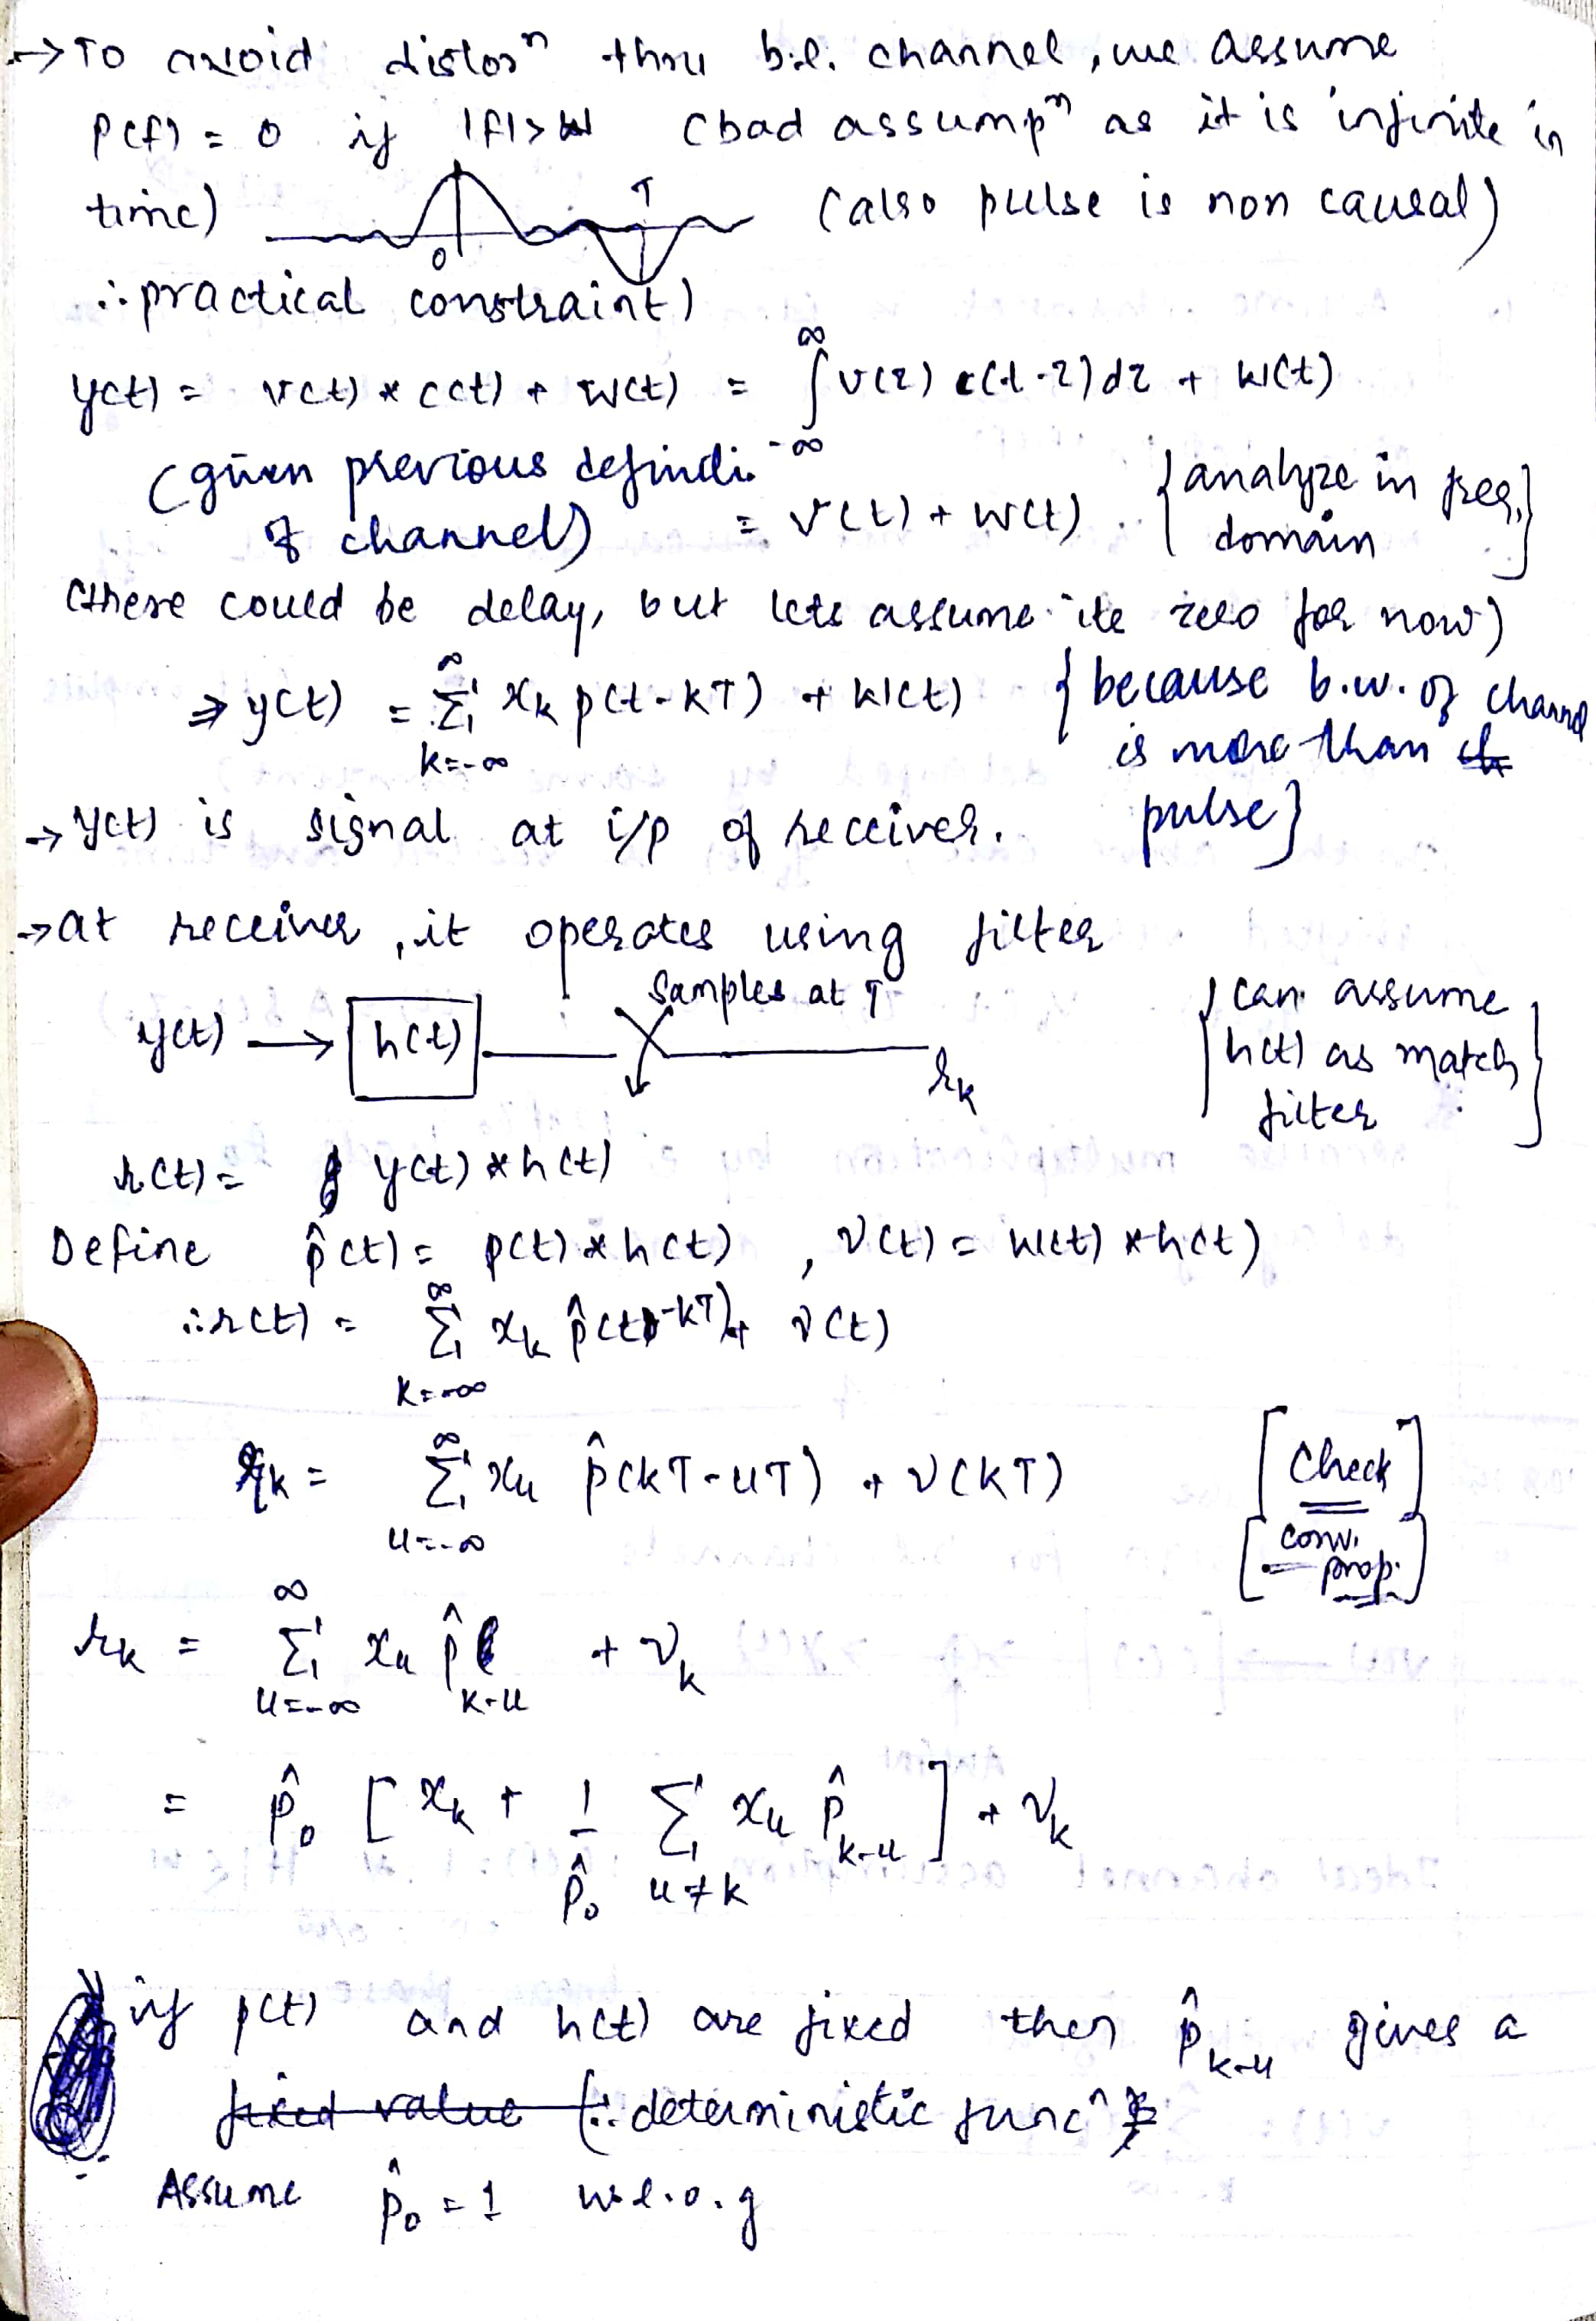 → To avoid distorⁿ thru b.l. channel, we assume
P(f) = 0 if |f| > W (bad assumpⁿ as it is infinite in
time) 0 T (also pulse is non causal)
∴ practical constraint)
y(t) = v(t) * c(t) + w(t) = ∫_{-∞}^{∞} v(τ) c(t-τ) dτ + w(t)
(given previous
of channel) = v(t) + w(t) {analyze in freq. domain}
(there could be delay, but lets assume its zero for now)
⇒ y(t) = Σ_{k=-∞}^{∞} x_k p(t-kT) + w(t) {because b.w. of channel
is more than
pulse}
→ y(t) is signal at i/p of receiver.
→ at receiver, it operates using filter
y(t) → [h(t)] samples at T r_k {can assume h(t) as match filter}
r(t) = y(t) * h(t)
Define p̂(t) = p(t) * h(t) , ν(t) = w(t) * h(t)
∴ r(t) = Σ_{k=-∞}^{∞} x_k p̂(t-kT) + ν(t)
r_k = Σ_{u=-∞}^{∞} x_u p̂(kT-uT) + ν(kT) [Check]
[conv. prop.]
r_k = Σ_{u=-∞}^{∞} x_u p̂_{k-u} + ν_k
= p̂_0 [x_k + 1/p̂_0 Σ_{u≠k} x_u p̂_{k-u}] + ν_k
if p(t) and h(t) are fixed then p̂_{k-u} gives a
fixed value (∵ deterministic funcⁿ
Assume p̂_0 = 1 w.l.o.g